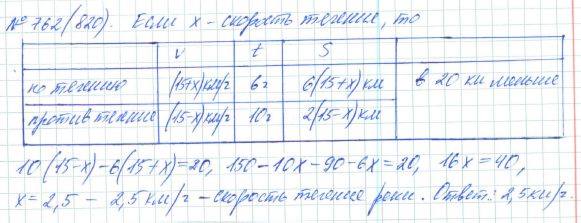 № 762 (820). Если x - скорость течение, то
v t S
по течению (15+x) км/ч 6 ч 6(15+x) км в 20 км меньше
против течение (15-x) км/ч 10 ч 2(15-x) км
10(15-x)-6(15+x)=20, 150-10x-90-6x=20, 16x=40,
x=2,5 - 2,5 км/ч - скорость течение реки. Ответ: 2,5 км/ч.